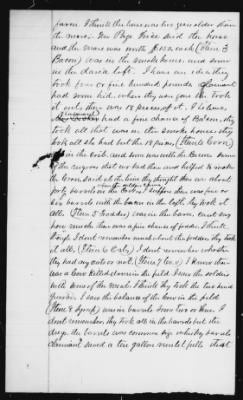 farm. I think the horse was two years older than
the mare. Mr Page Price said the horse
and the mare was worth $ each. (Item 3
Bacon) was in the smoke house and some
in the I have an idea they
took four or five hundred pounds. Claimant
had some hid, when they was gone she took
it out, there was 18 pieces of it. I believe
Claimant had a fine chance of Bacon, they
took all that was in the smoke house they
took all she had but the 18 pieces, (Item 4 Corn)
in the crib, and some was with the Bacon. Some
of the negroes that we had then and helped to make
the Crop said at the time they thought there was about
forty barrels in the Crib, I suppose there was five or
six barrels with the bacon in the loft they took it
all. (Item 5 Fodder) was in the barn, can't say
how much there was a fine chance of fodder I think.
I don't remember much about the fodder, they took
it all. (Item 6 Oats) I don't remember whether
they had any oats or not. (Item 7 ) I know there
was a Cow killed down in the field. I saw the soldiers
with some of the meat. I think they took the two hind
quarters. I saw the balance of the Cow in the field
(Item 8 Syrup) was in barrels two or three. I
don't remember, they took all in the barrels but the
the barrels was common big whiskey barrels
Claimant used a ten gallon full that